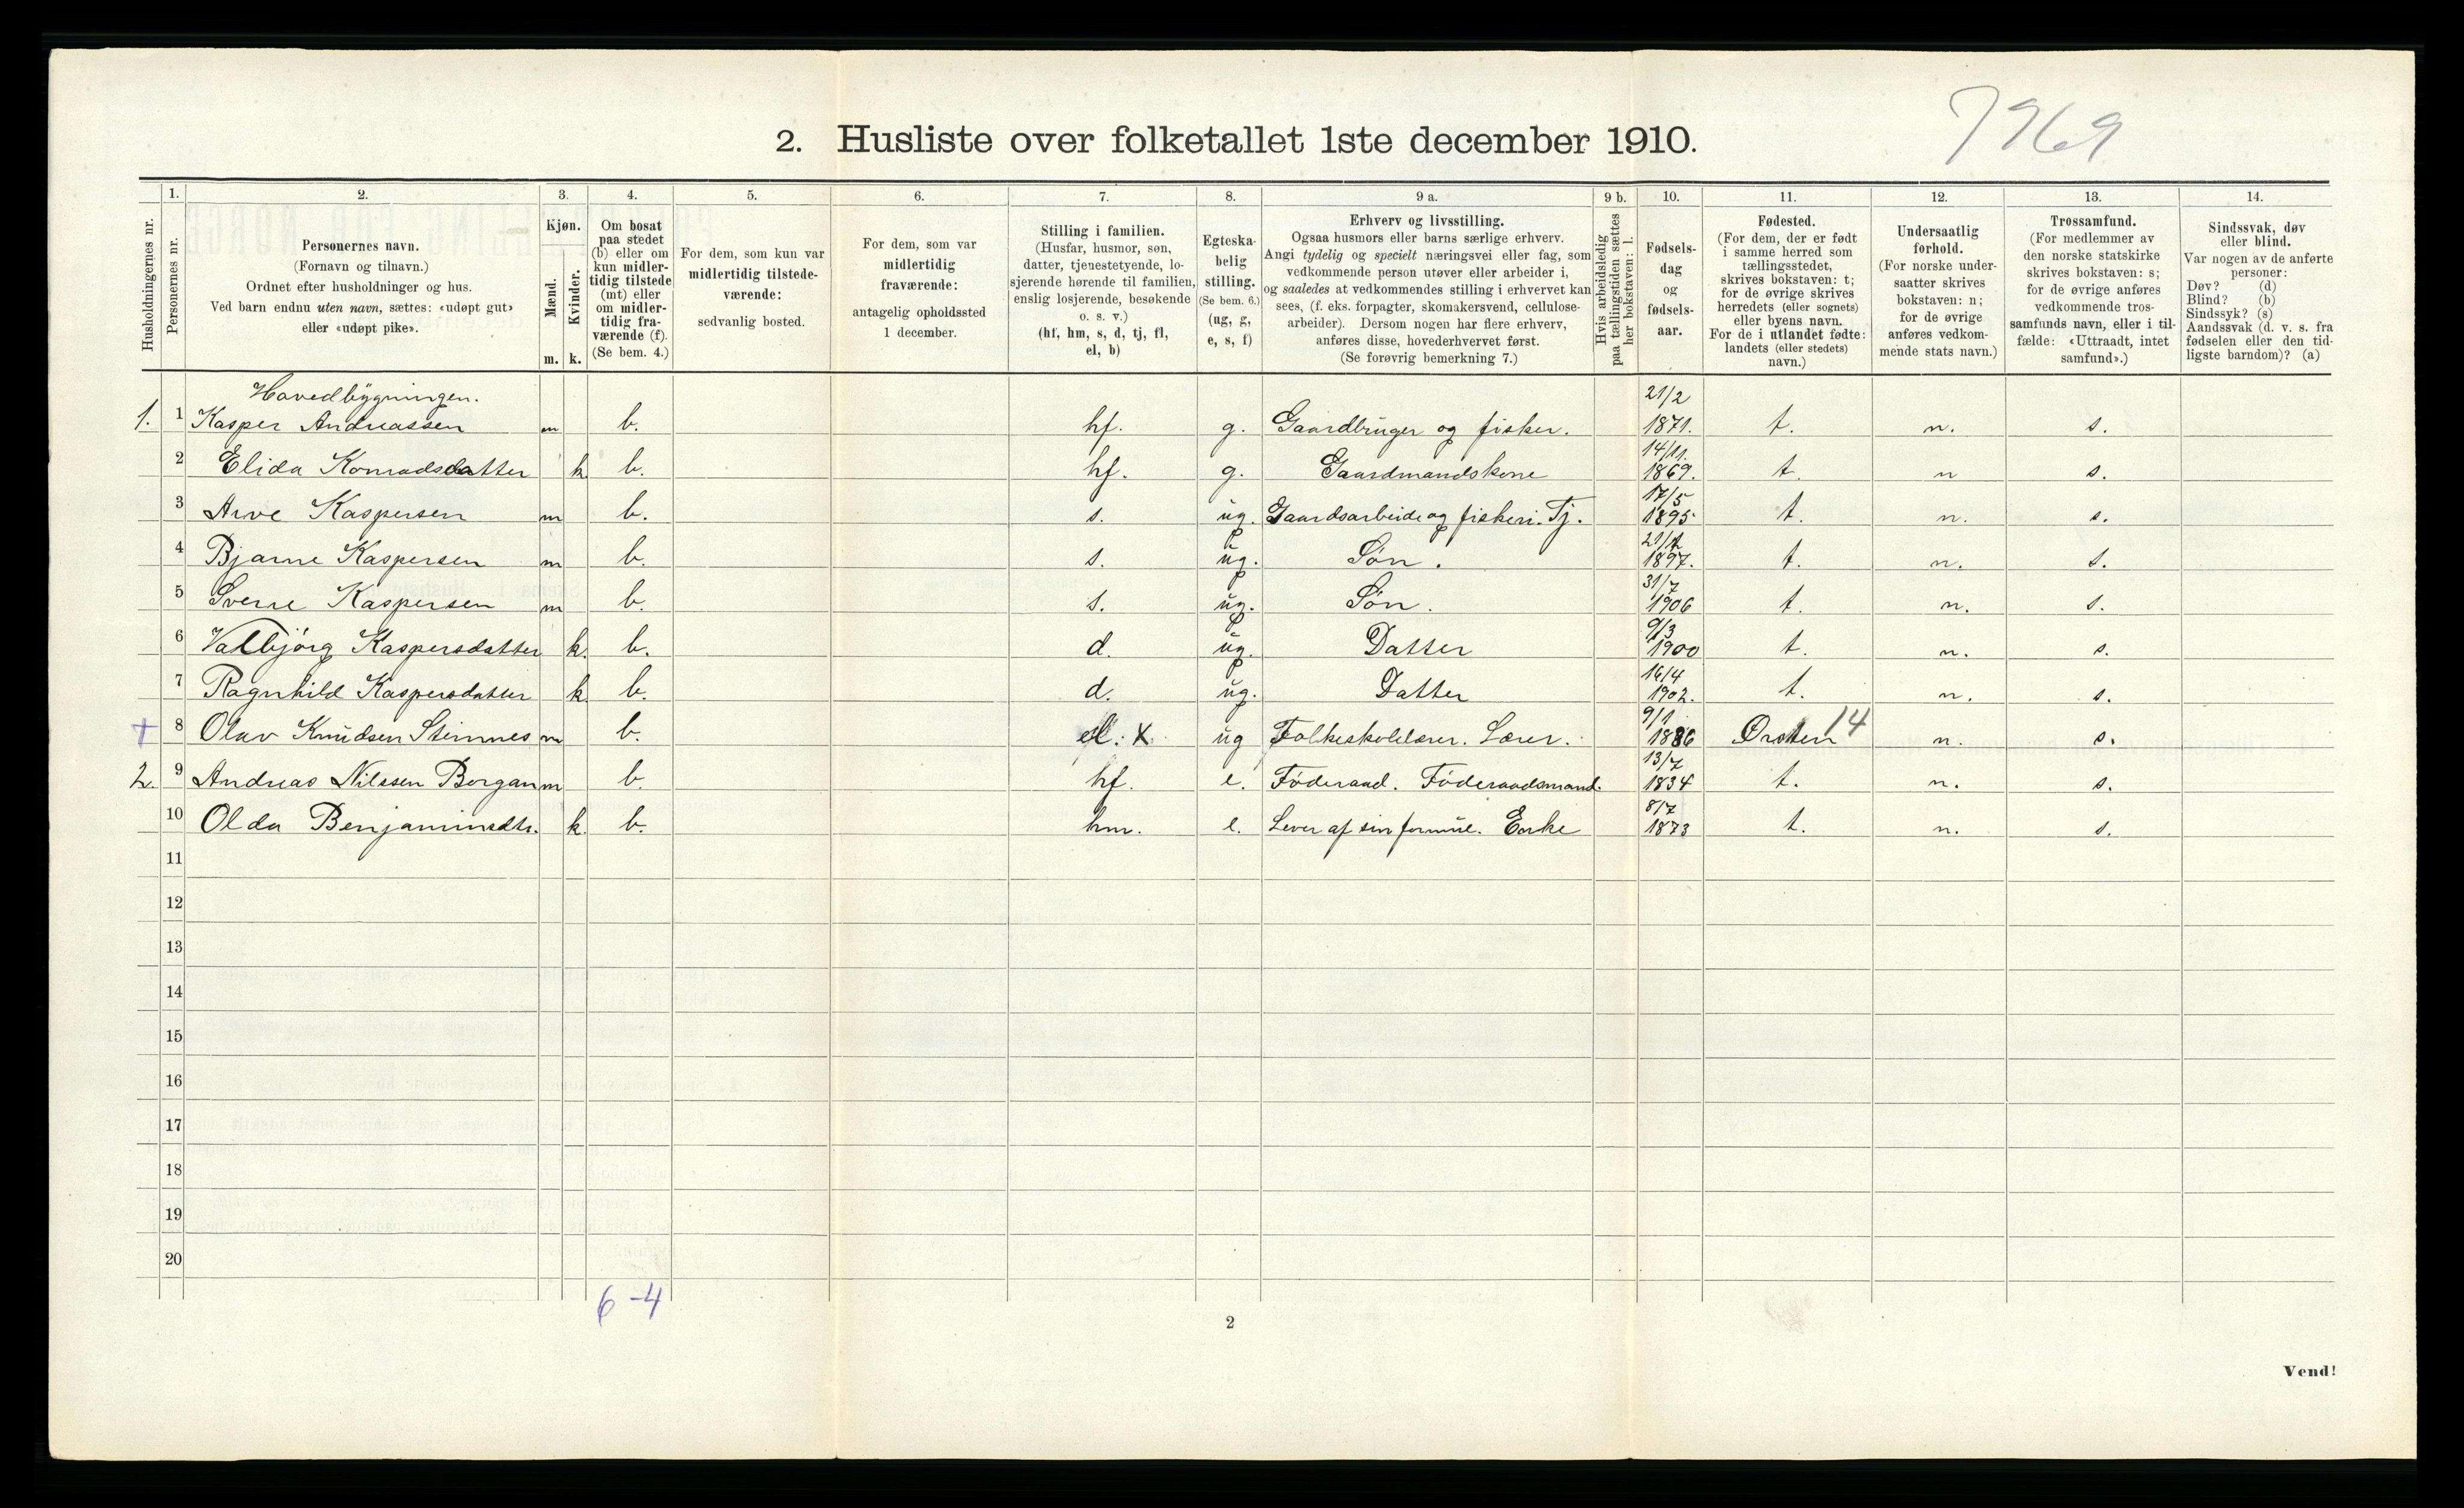 7969
2. Husliste over folketallet 1ste december 1910.
Husholdningernes nr.
1. Personernes nr.
2. Personernes navn.
(Fornavn og tilnavn.)
Ordnet efter husholdninger og hus.
Ved barn endnu uten navn, sættes: «udøpt gut»
eller «udøpt pike».
3. Kjøn.
Mænd. m.
Kvinder. k.
4. Om bosat
paa stedet
(b) eller om
kun midler-
tidig tilstede
(mt) eller
om midler-
tidig fra-
værende (f).
(Se bem. 4.)
5. For dem, som kun var
midlertidig tilstede-
værende:
sedvanlig bosted.
6. For dem, som var
midlertidig
fraværende:
antagelig opholdssted
1 december.
7. Stilling i familien.
(Husfar, husmor, søn,
datter, tjenestetyende, lo-
sjerende hørende til familien,
enslig losjerende, besøkende
o. s. v.)
(hf, hm, s, d, tj, fl,
el, b)
8. Egteska-
belig
stilling.
(Se bem. 6.)
(ug, g,
e, s, f)
9 a. Erhverv og livsstilling.
Ogsaa husmors eller barns særlige erhverv.
Angi tydelig og specielt næringsvei eller fag, som
vedkommende person utøver eller arbeider i,
og saaledes at vedkommendes stilling i erhvervet kan
sees, (f. eks. forpagter, skomakersvend, cellulose-
arbeider). Dersom nogen har flere erhverv,
anføres disse, hovederhvervet først.
(Se forøvrig bemerkning 7.)
9 b. Hvis arbeidsledig
paa tællingstiden sættes
her bokstaven: l.
10. Fødsels-
dag
og
fødsels-
aar.
11. Fødested.
(For dem, der er født
i samme herred som
tællingsstedet,
skrives bokstaven: t;
for de øvrige skrives
herredets (eller sognets)
eller byens navn.
For de i utlandet fødte:
landets (eller stedets)
navn.)
12. Undersaatlig
forhold.
(For norske under-
saatter skrives
bokstaven: n;
for de øvrige
anføres vedkom-
mende stats navn.)
13. Trossamfund.
(For medlemmer av
den norske statskirke
skrives bokstaven: s;
for de øvrige anføres
vedkommende tros-
samfunds navn, eller i til-
fælde: «Uttraadt, intet
samfund».)
14. Sindssvak, døv
eller blind.
Var nogen av de anførte
personer:
Døv? (d)
Blind? (b)
Sindssyk? (s)
Aandssvak (d. v. s. fra
fødselen eller den tid-
ligste barndom)? (a)
Hovedbygningen.
1. 1 Kasper Andreassen m b. hf. g. Gaardbruger og fisker. 21/2 1871. t. n. s.
2 Elida Konradsdatter k b. hf. g. Gaardmandskone 14/11. 1869. t. n s.
3 Arve Kaspersen m b. s. ug. Gaardsarbeide og fiskeri. Tj. 17/5 1895 t. n. s.
4 Bjarne Kaspersen m b. s. ug. Søn. 1897. t. n. s.
5 Sverre Kaspersen m b. s. ug. Søn. 31/7 1906 t. n. s.
6 Valbjørg Kaspersdatter k. b. d. ug. Datter 9/3 1900 t. n. s.
7 Ragnhild Kaspersdatter k b. d. ug. Datter 16/4 1902. t. n. s.
+ 8 Olav Knudsen Steinnes m b. el: x ug Folkeskolelærer. Lærer. 9/1 1886 Ørsten 14 n. s.
2. 9 Andreas Nilssen Borgan m b. hf. e. Føderaad. Føderaadsmand. 13/7 1834 t. n. s.
10 Olda Benjaminsdtr. k. b. hm. e. Lever af sin formue. Enke 8/7 1873 t. n. s.
11
12
13
14
15
16
17
18
19
20
6-4
2
Vend!